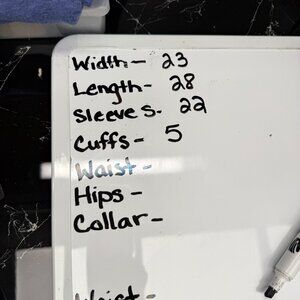 Width - 23
Length - 28
Sleeves - 22
Cuffs - 5
Waist -
Hips -
Collar -
Waist -